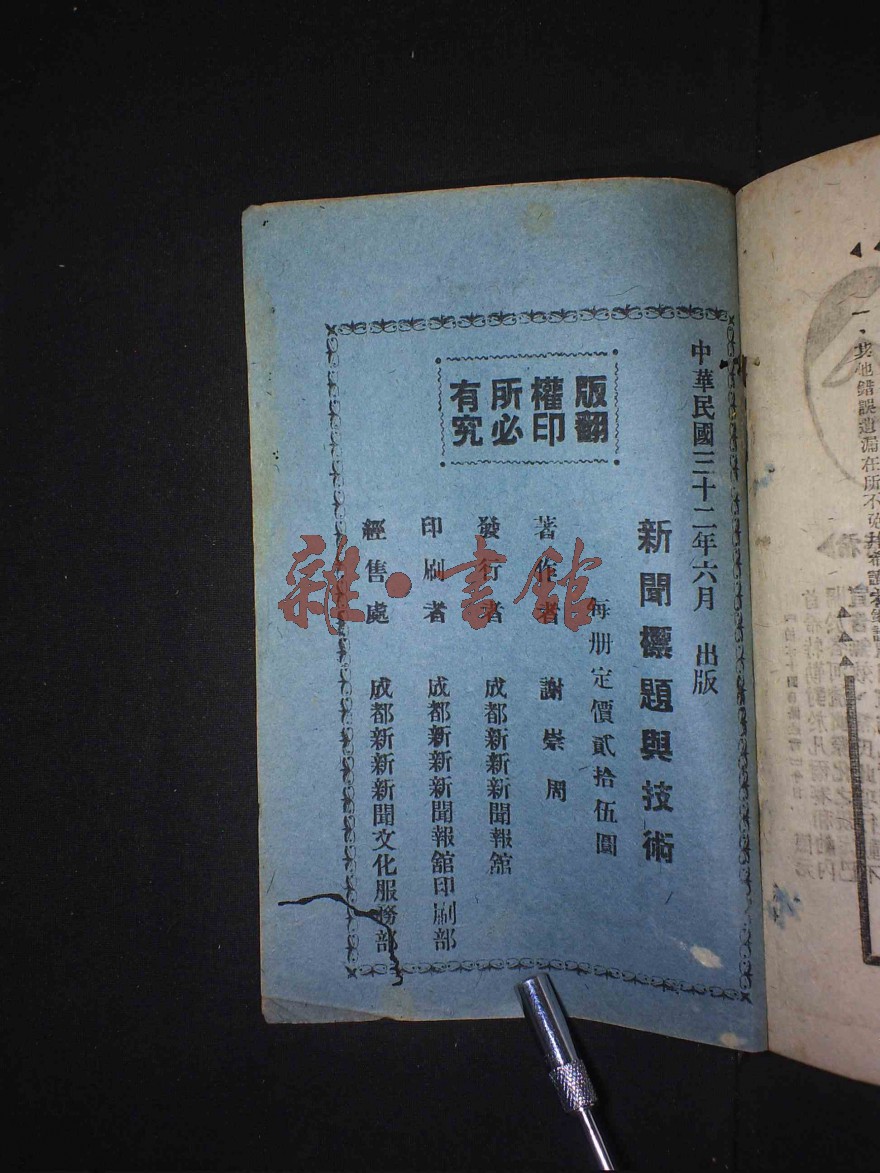 中華民國三十二年六月　出版
新聞標題與技術
每册定價貳拾伍圓
著作者　謝崇周
發行者　成都新新新聞報舘
印刷者　成都新新新聞報舘印刷部
經售處　成都新新新聞文化服務部
版權所有
翻印必究
雜·書館
一、其他錯誤遺漏在所不免